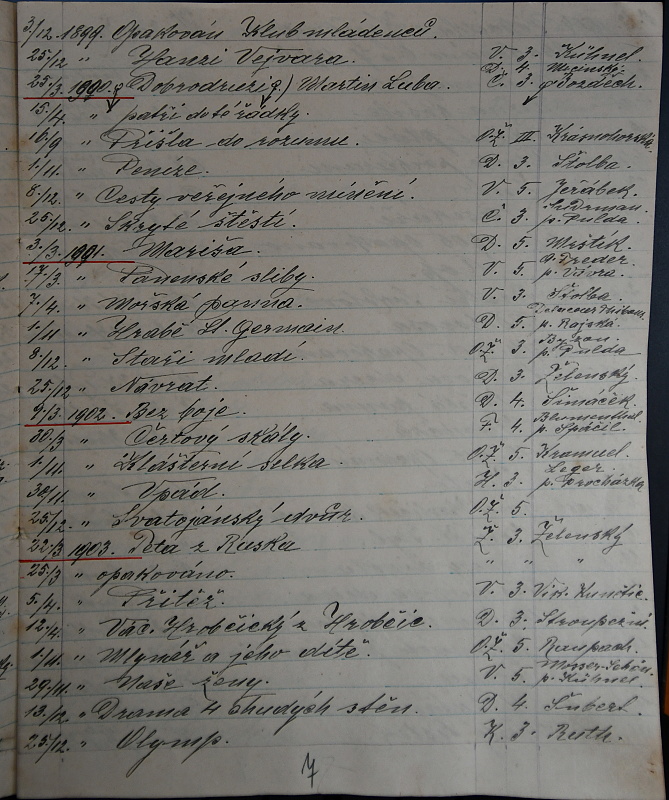 3/12. 1899. Opakován Klub mládenců.
25/12 " Hanzi Vejvara. V. 3. Kühnel.
25/3. 1900. Dobrodruzi Martin Luba. D. 4. Č. 3. p Bozděch.
15./4. " patří do té řádky.
16/9 " Přišla do rozumu. O.Ž. III. Krásnohorská
1./11 " Peníze. D. 3. Štolba.
8./12. " Cesty veřejného mínění. V. 5. Jeřábek.
26./12. " Skryté štěstí. Č. 3. p. Fulda.
3./3. 1901. Mariša. D. 5. Mrštík.
17/3. " Panenské sliby. V. 5. p. Vávra.
7./4. " Mořská panna. V. 3. Štolba.
1./11 " Hrabě St. Germain. D. 5. p. Rajská.
8./12. " Staří mladí. O.Ž. 3. p. Fulda
25/12 " Návrat. D. 3. Želenský.
9./3. 1902. Bez boje. D. 4. Šimáček.
30/3 " Čertovy skály. F. 4. Blumenthal p. Špáčil.
1./11. " Klášterní selka. O.Ž. 5. Kramuel.
30/11. " Vpád. H. 3. Leger. p. Procházka
25/12. " Svatojánský dvůr. O.Ž. 5.
22/3 1903. Teta z Ruska Ž. 3. Želenský
25/3 " opakováno. " " "
5./4. " Přítěž. V. 3. Vikt. Kunětic.
12./4. " Vác. Hrobčický z Hrobčic. D. 3. Stroupežni.
1./11 " Mlynář a jeho dítě. O.Ž. 5. Raupach.
29./11. " Naše ženy. V. 5. Mosser-Schön. p. Kühnel.
13./12. " Drama 4 chudých stěn. D. 4. Šubert.
25./12. " Olymp. K. 3. Ruth.
7